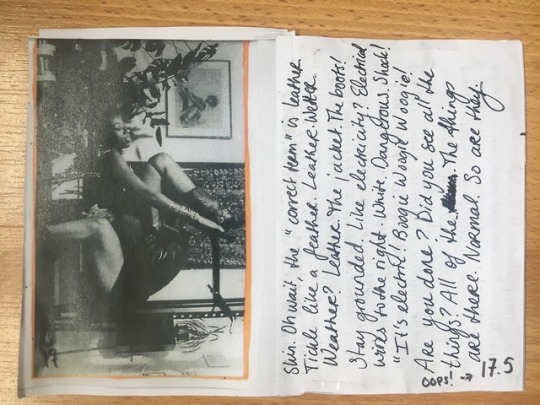 Skin. Oh wait, the "correct term" is leather.
Tickle like a feather. Leather. Wetter.
Weather? Leather. The jacket. The boots!
Stay grounded. Like electricity? Electrical
wires to the right. White. Dangerous. Shock!
"It's electric! Boogie Woogie Woogie!
Are you done? Did you see all the
things? All of the The things
are there. Normal. So are they
OOPS!
17.5